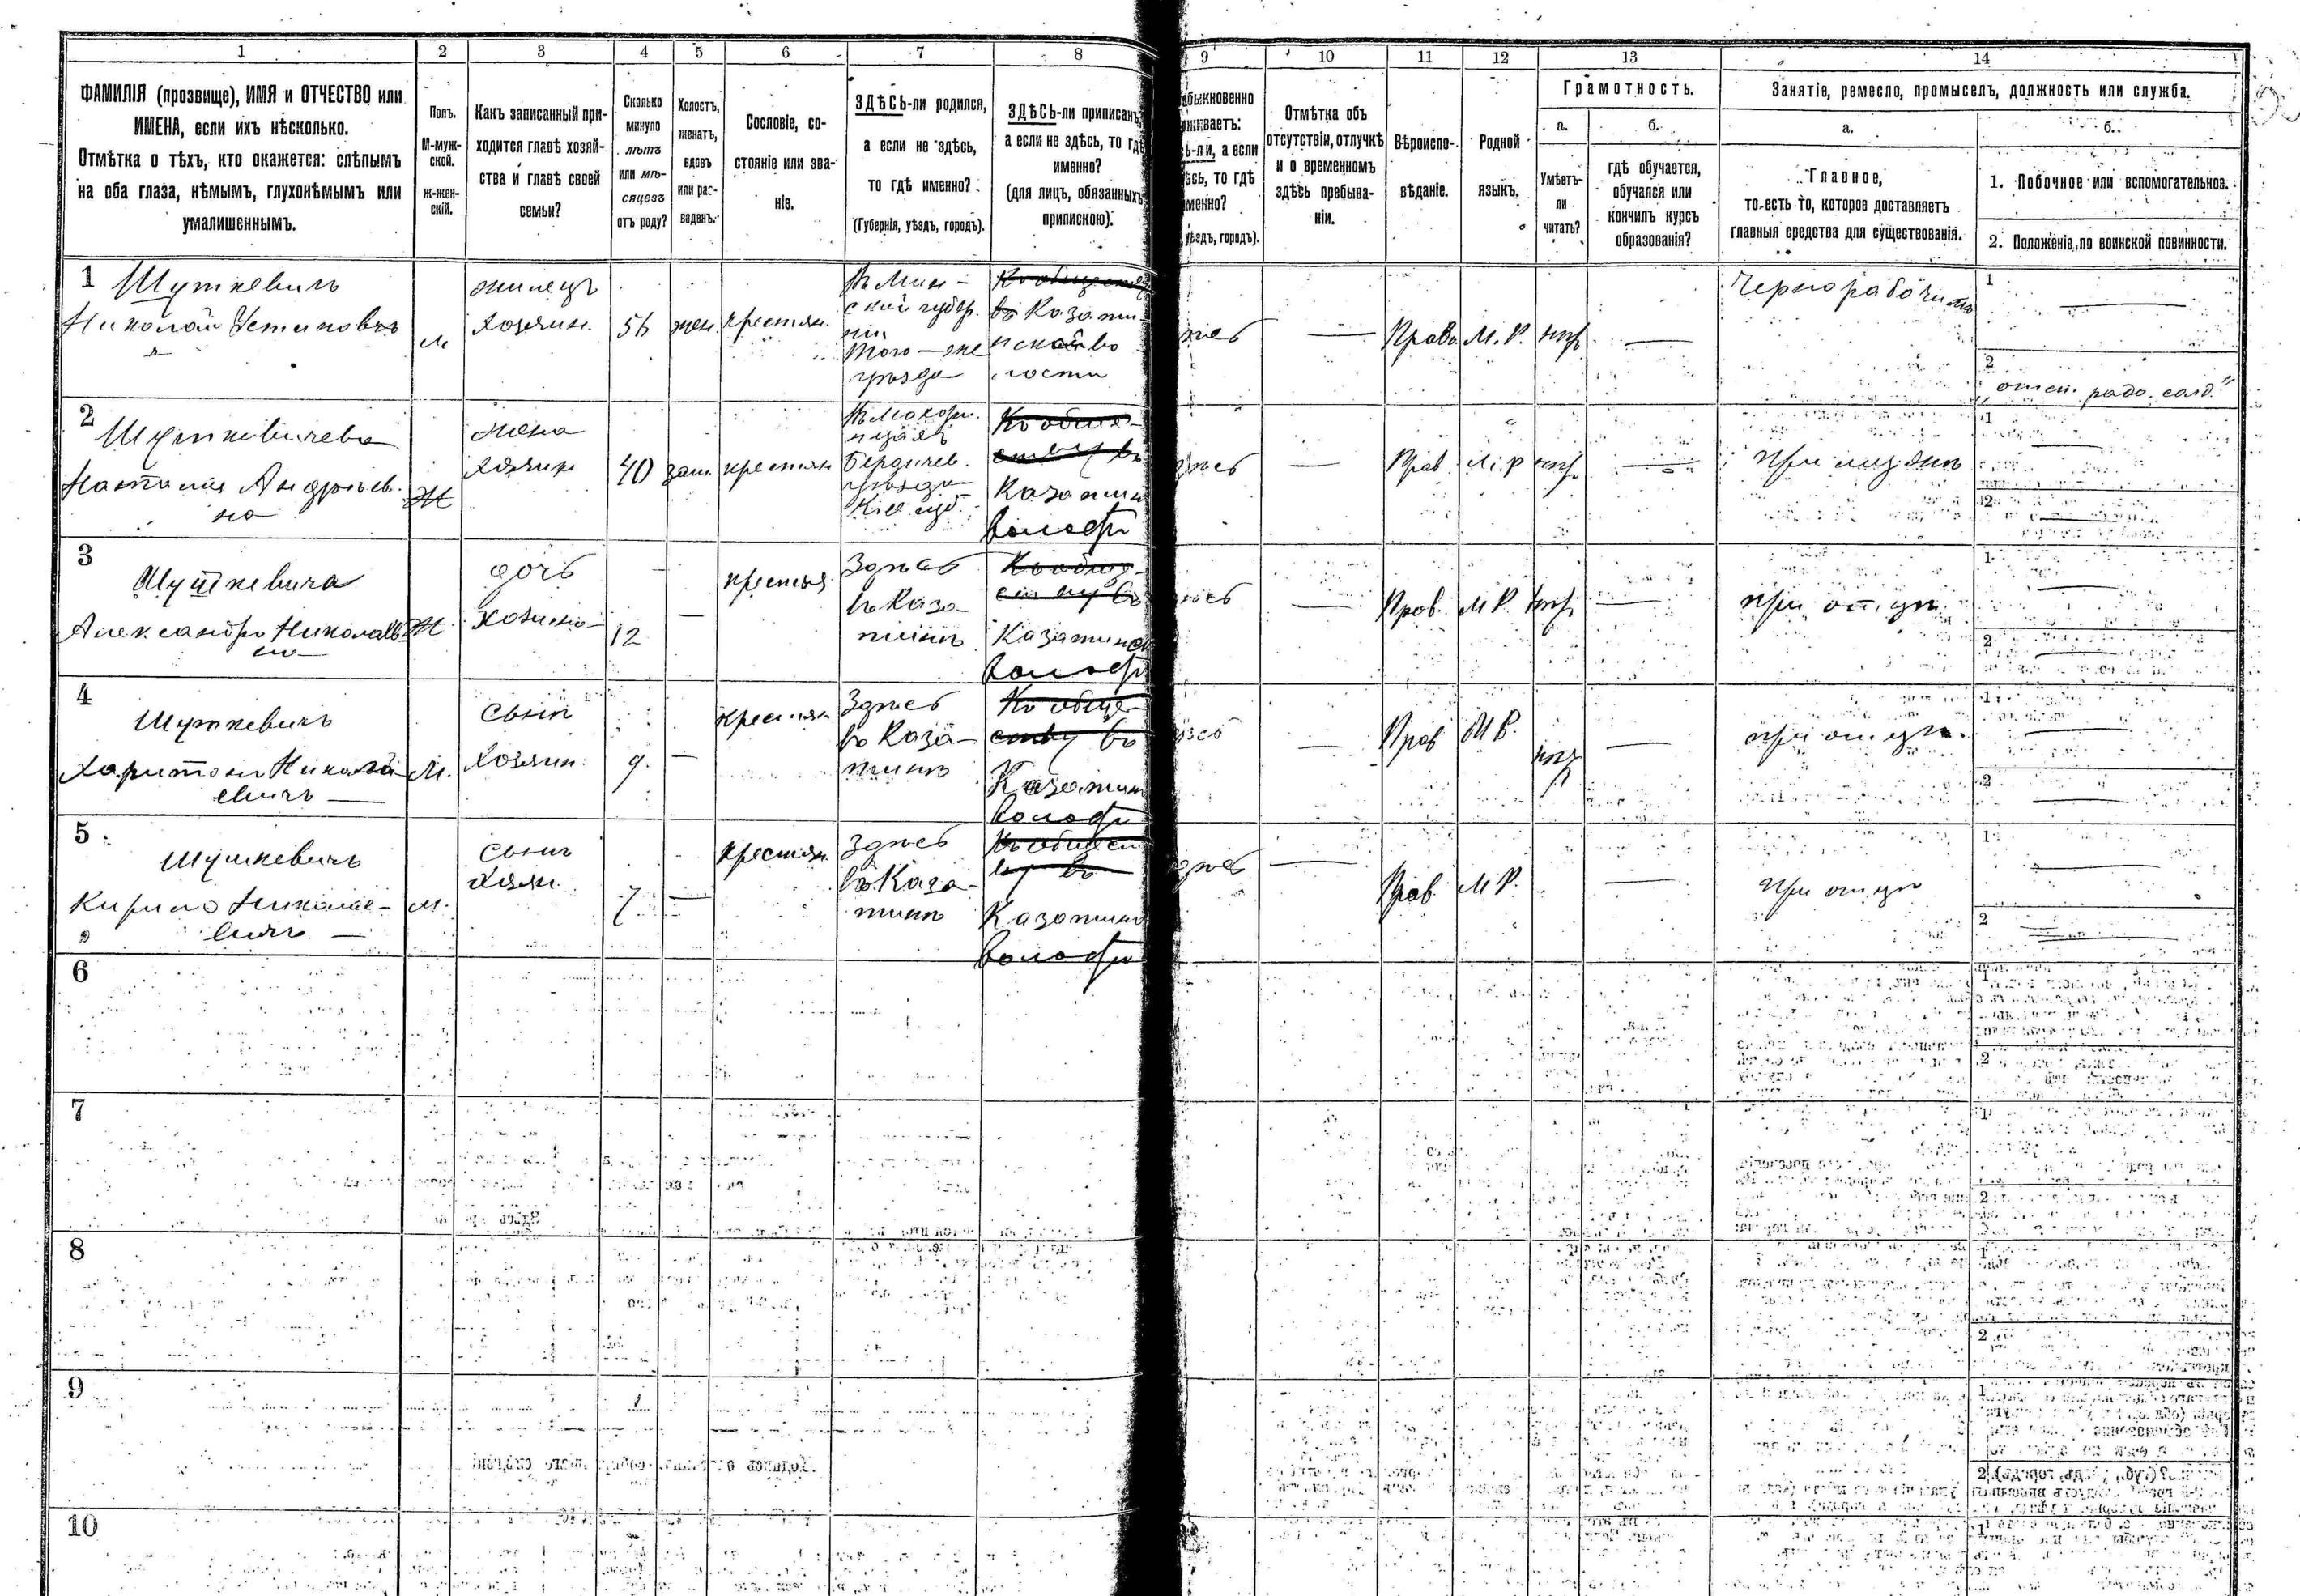 1 2 3 4 5 6 7 8 9 10 11 12 13 14
ФАМИЛІЯ (прозвище), ИМЯ и ОТЧЕСТВО или
ИМЕНА, если ихъ нѣсколько.
Отмѣтка о тѣхъ, кто окажется: слѣпымъ
на оба глаза, нѣмымъ, глухонѣмымъ или
умалишеннымъ.
Полъ.
М-муж-
ской.
ж-жен-
скій.
Какъ записанный при-
ходится главѣ хозяй-
ства и главѣ своей
семьи?
Сколько
минуло
лѣтъ
или мѣ-
сяцевъ
отъ роду?
Холостъ,
женатъ,
вдовъ
или раз-
веденъ.
Сословіе, со-
стояніе или зва-
ніе.
ЗДѢСЬ-ли родился,
а если не здѣсь,
то гдѣ именно?
(Губернія, уѣздъ, городъ).
ЗДѢСЬ-ли приписанъ,
а если не здѣсь, то гдѣ
именно?
(для лицъ, обязанныхъ
припискою).
быкновенно
живаетъ:
ь-ли, а если
сь, то гдѣ
менно?
уѣздъ, городъ).
Отмѣтка объ
отсутствіи, отлучкѣ
и о временномъ
здѣсь пребыва-
ніи.
Вѣроиспо-
вѣданіе.
Родной
языкъ.
Грамотность.
а.
Умѣетъ-
ли
читать?
б.
гдѣ обучается,
обучался или
кончилъ курсъ
образованія?
Занятіе, ремесло, промыселъ, должность или служба.
а.
Главное,
то-есть то, которое доставляетъ
главныя средства для существованія.
б.
1. Побочное или вспомогательное.
2. Положеніе по воинской повинности.
1
Шуткевичъ
Николай Устиновъ
м
жилецъ
хозяин.
56
жен.
крестян.
въ Мин-
ской губер.
ніи
того-же
уѣзда
Къ общест
въ Казати
нской во
лости
Прав.
М. Р.
Чернорабочій
1
2
2
Шуткевичева
Наталия Андріев.
на
Ж
жена
хозяин
40
зам.
крестян
Бердичев.
уѣзда
Кіе губ.
Къ обще-
ству въ
Казатин
волости
Прав
М. Р
при мужѣ
1
2
3
Шуткевича
Александра Николаев
на
Ж
дочь
хозяина
12
крестья
Здѣсь
въ Каза-
тинѣ
Къ обще-
ству въ
Казатинск
волости
Прав.
М Р.
при отцѣ
1
2
4
Шуткевичъ
Харитонъ Никола-
евичъ
М.
сынъ
хозяин.
9.
крестян
Здѣсь
въ Каза-
тинѣ
Къ обще-
ству въ
Казатин
волости
Прав
М Р.
при отцѣ
1
2
5
Шуткевичъ
Кирило Николае-
вичъ
м.
сынъ
хозяи.
7
крестян.
Здѣсь
въ Каза-
тинѣ
Къ общест
ву въ
Казатин
волости
Прав.
М Р.
при отцѣ
1
2
6
1
2
7
1
2
8
1
2
9
1
2
10
1